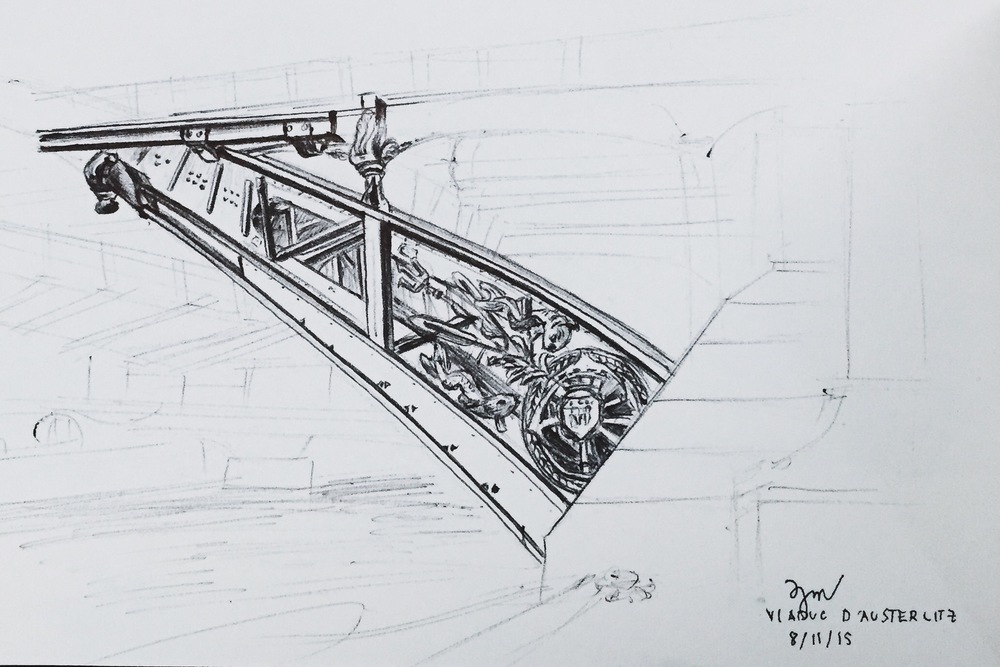 VIADUC D'AUSTERLITZ
8/11/15